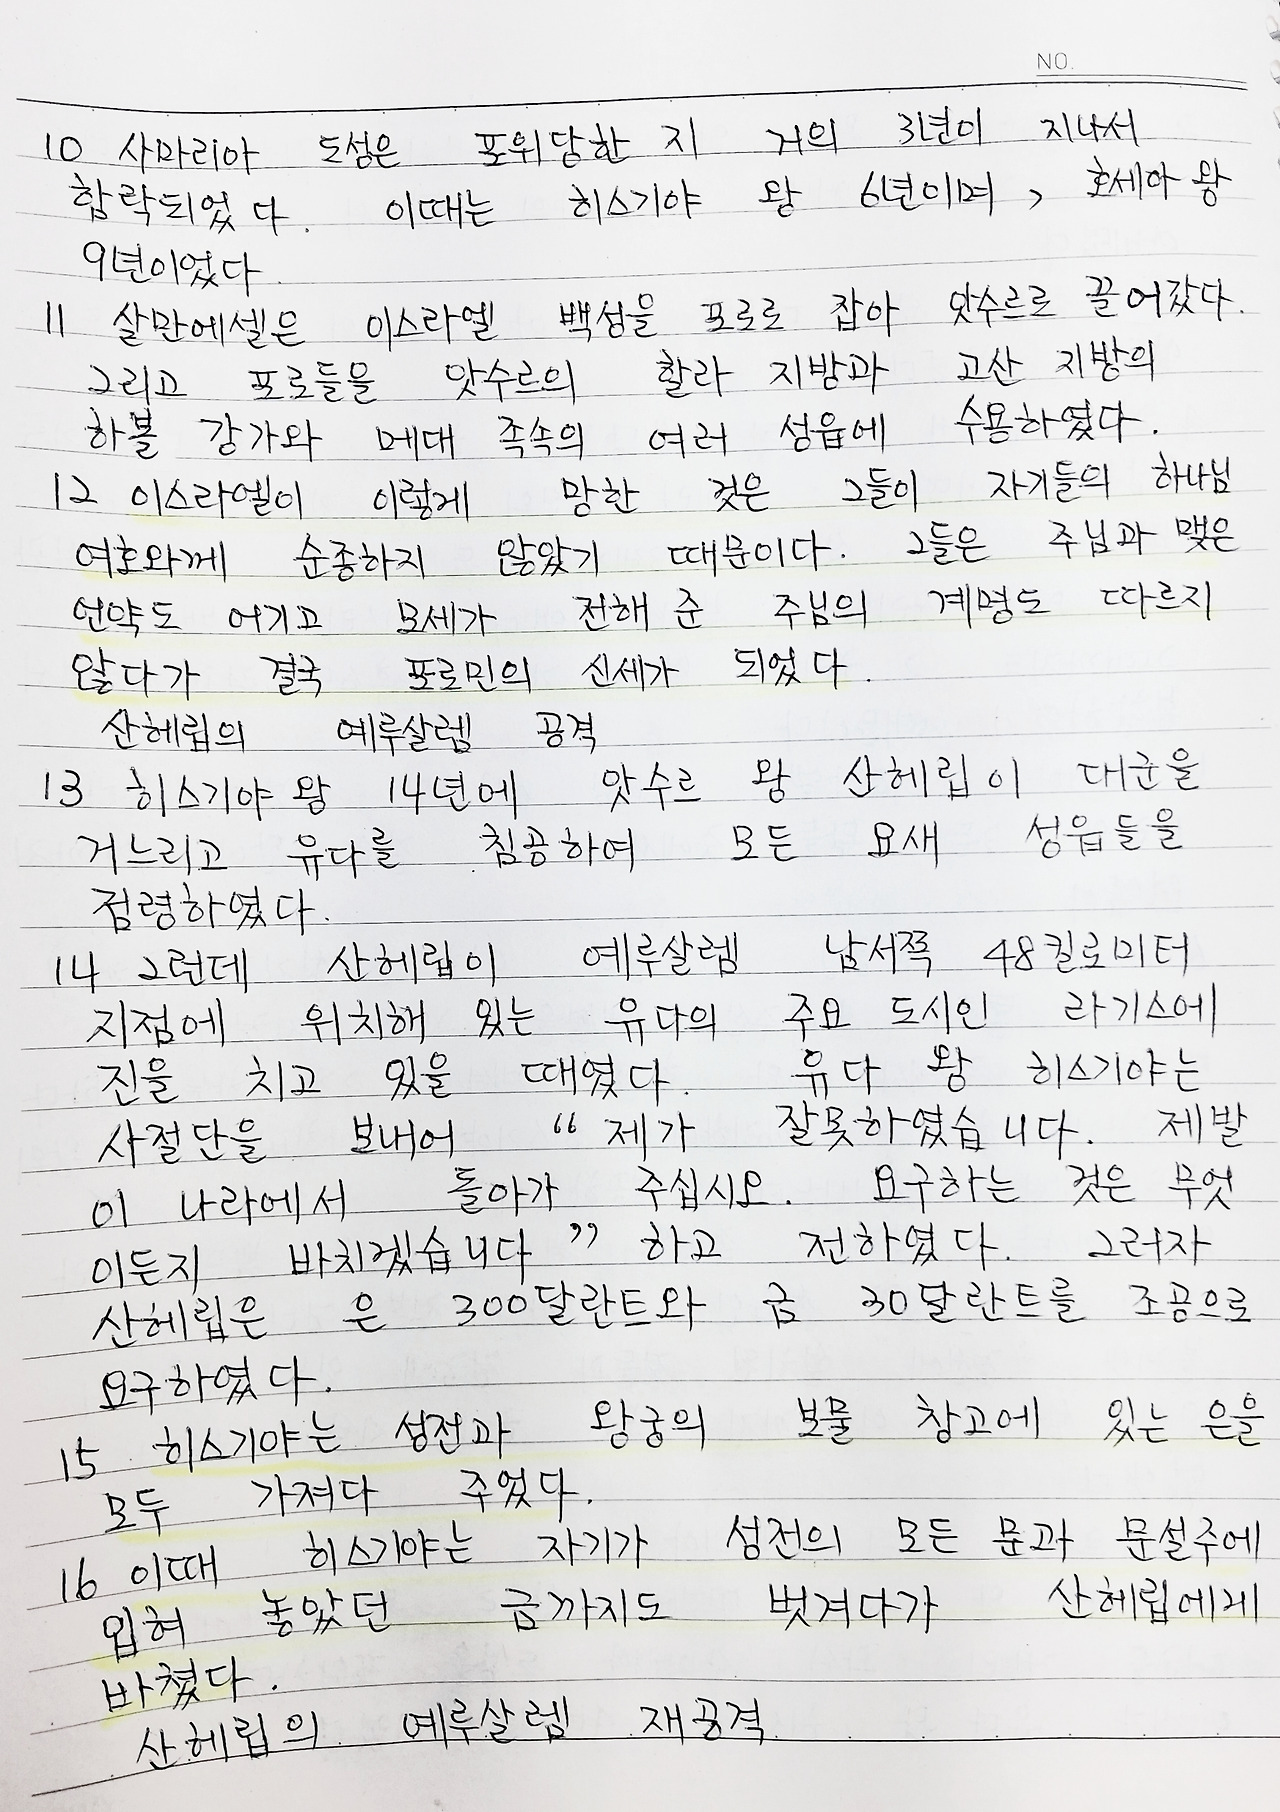 NO.
10 사마리아 도성은 포위당한 지 거의 3년이 지나서
함락되었다. 이때는 히스기야 왕 6년이며, 호세아 왕
9년이었다
11 살만에셀은 이스라엘 백성을 포로로 잡아 앗수르로 끌어갔다.
그리고 포로들을 앗수르의 할라 지방과 고산 지방의
하볼 강가와 메대 족속의 여러 성읍에 수용하였다.
12 이스라엘이 이렇게 망한 것은 그들이 자기들의 하나님
여호와께 순종하지 않았기 때문이다. 그들은 주님과 맺은
언약도 어기고 모세가 전해 준 주님의 계명도 따르지
않다가 결국 포로민의 신세가 되었다.
산헤립의 예루살렘 공격
13 히스기야 왕 14년에 앗수르 왕 산헤립이 대군을
거느리고 유다를 침공하여 모든 요새 성읍들을
점령하였다.
14 그런데 산헤립이 예루살렘 남서쪽 48킬로미터
지점에 위치해 있는 유다의 주요 도시인 라기스에
진을 치고 있을 때였다. 유다 왕 히스기야는
사절단을 보내어 “제가 잘못하였습니다. 제발
이 나라에서 돌아가 주십시오. 요구하는 것은 무엇
이든지 바치겠습니다” 하고 전하였다. 그러자
산헤립은 은 300달란트와 금 30달란트를 조공으로
요구하였다.
15 히스기야는 성전과 왕궁의 보물 창고에 있는 은을
모두 가져다 주었다.
16 이때 히스기야는 자기가 성전의 모든 문과 문설주에
입혀 놓았던 금까지도 벗겨다가 산헤립에게
바쳤다.
산헤립의 예루살렘 재공격